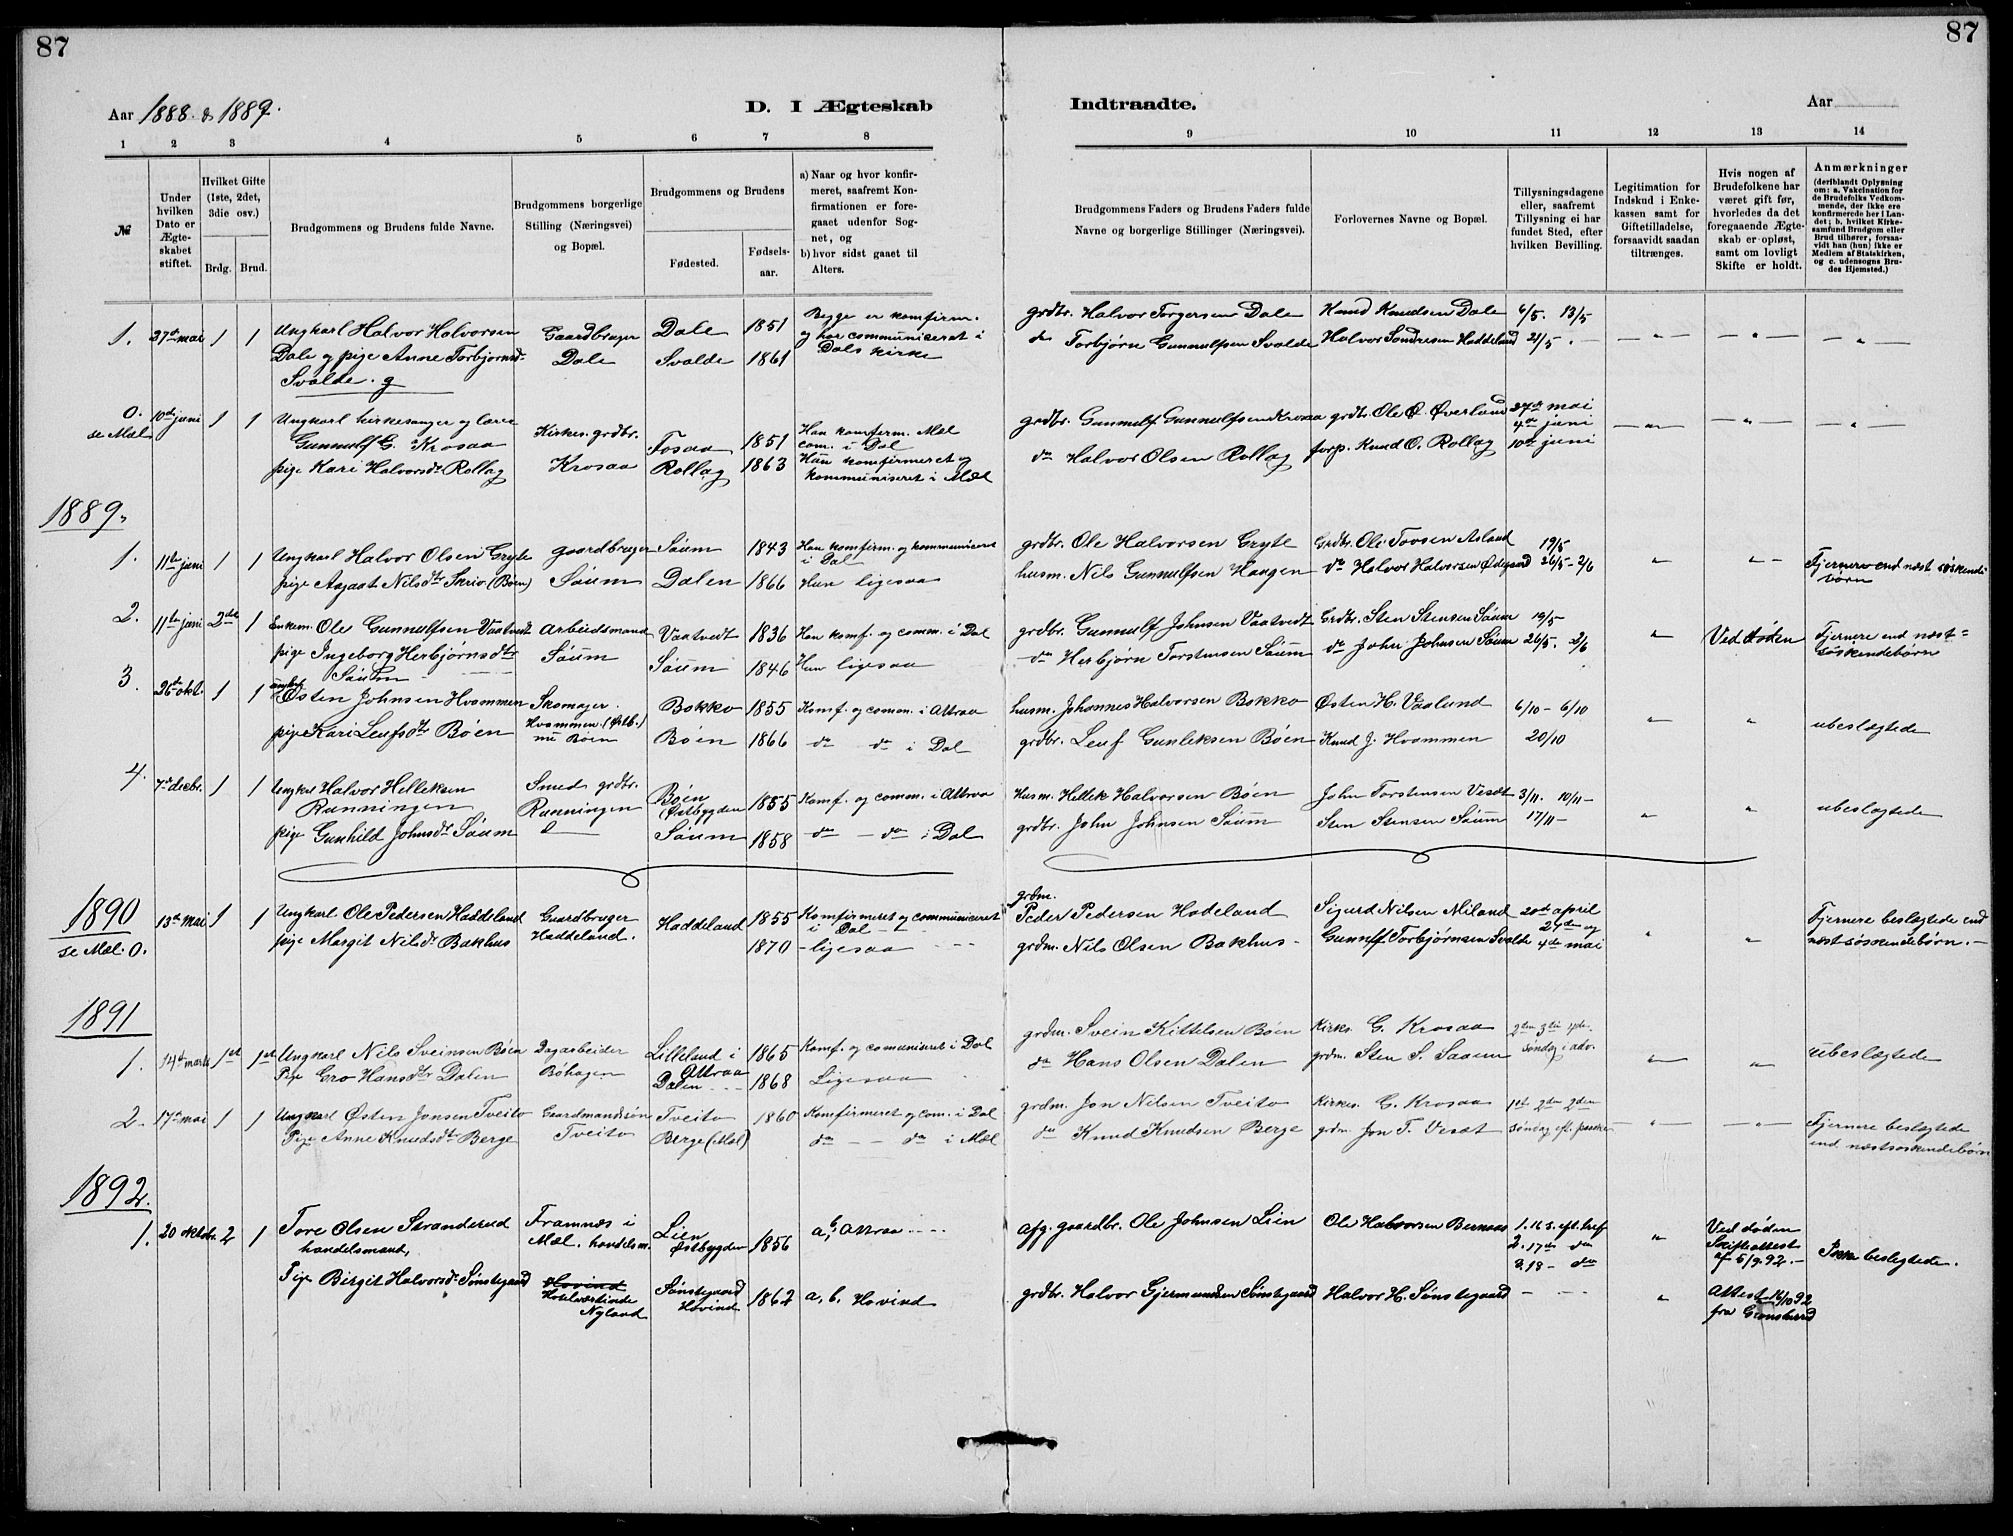 87
87
Aar 1888 & 1889.
D. I Ægteskab
Indtraadte.
Aar
1 2 3 4 5 6 7 8
9 10 11 12 13 14
№
Under hvilken Dato er Ægteskabet stiftet.
Hvilket Gifte (1ste, 2det, 3die osv.)
Brdg. Brud.
Brudgommens og Brudens fulde Navne.
Brudgommens borgerlige Stilling (Næringsvei) og Bopæl.
Brudgommens og Brudens
Fødested.
Fødselsaar.
a) Naar og hvor konfirmeret, saafremt Konfirmationen er foregaaet udenfor Sognet, og
b) hvor sidst gaaet til Alters.
Brudgommens Faders og Brudens Faders fulde Navne og borgerlige Stillinger (Næringsvei).
Forlovernes Navne og Bopæl.
Tillysningsdagene eller, saafremt Tillysning ei har fundet Sted, efter hvilken Bevilling.
Legitimation for Indskud i Enkekassen samt for Giftetilladelse, forsaavidt saadan tiltrænges.
Hvis nogen af Brudefolkene har været gift før, hvorledes da det foregaaende Ægteskab er opløst, samt om lovligt Skifte er holdt.
Anmærkninger
(deriblandt Oplysning om: a. Vakcination for de Brudefolks Vedkommende, der ikke ere konfirmerede her i Landet; b. hvilket Kirkesamfund Brudgom eller Brud tilhører, forsaavidt han (hun) ikke er Medlem af Statskirken, og c. udensogns Brudes Hjemsted.)
1. 27de mai 1 1 Ungkarl Halvor Halvorsen Gaardbruger Dale 1851 Begge er komfirm. grdbr. Halvor Torgersen Dale Knud Knudsen Dale 6/5. 13/5
Dale og pige Anne Torbjørnsd. Dale Svalde 1861 og har communiceret i Dals kirke do Torbjørn Gunnulfsen Svalde Halvor Sondresen Haddeland 21/5.
Svalde.
0. 10de juni 1 1 Ungkarl kirkesanger og lærer Kirkes. grdbr. grdbr. Gunnulf Gunnulfsen Krosaa grdbr. Ole O. Øverland 27de mai
se Mæl Gunnulf G. Krosaa Fosaa 1851 Han komfirm. Mæl com. i Dal 4de juni
pige Kari Halvorsdt Rollag Krosaa Rollag 1863 Hun komfirmeret og kommuniseret i Mæl do Halvor Olsen Rollag forp. Knud O. Rollag 10de juni
1889.
1. 11te juni 1 1 Ungkarl Halvor Olsen Gryte gaardbruger Saum 1843 Han komfirm. og kommuniceret i Dal grdbr. Ole Halvorsen Gryte Grdbr. Ole Tovsen Asland 19/5
pige Aagaat Nilsdtr Skrivo (Bøen) Saum Dalen 1866 Hun ligesaa husm. Nils Gunnulfsen Haugen do Halvor Halvorsen Ødegaard 26/5 - 2/6 " " Fjernere end næst søskendebørn
2. 11te juni 2de 1 Enkem. Ole Gunnulfsen Vaatvedt Arbeidsmand Vaatvedt 1836 Han komf. og comm. i Dal grdbr. Gunnulf Johnsen Vaatvedt Grdbr. Sten Stensen Saum 19/5
pige Ingeborg Herbjørnsdtr Saum Saum Saum 1846 Hun ligesaa do Herbjørn Torstensen Saum do John Johnsen Saum 26/5. 2/6 " Ved døden Fjernere end næst=søskendebørn
3. 26de okt. 1 1 ungkarl Østen Johnsen Hvammen Skomager. Bokko 1855 Komf. og comm. i Attraa husm. Johannes Halvorsen Bokko Østen H. Vaalund 6/10 - 6/10
pige Kari Leufsdtr Bøen Hvammen (Østb.) nu Bøen Bøen 1866 do do i Dal grdbr. Leuf Gunleksen Bøen Knud J. Hvammen 20/10 " " ubeslægtede
4. 7de decbr. 1 1 Ungkarl Halvor Helleksen Smed grdbr. Bøen 1855 Komf. og comm. i Attraa Husm. Hellek Halvorsen Bøen John Torstensen Vesæt 3/11. 10/11 -
Runningen Runningen (Østbygden
pige Gunhild Johnsdt Saum Saum 1858 do - do i Dal grdbr. John Johnsen Saum Sten Stensen Saum 17/11 - " " ubeslægtede
1890 13de mai 1 1 Ungkarl Ole Pedersen Haddeland Gaardbruger Haddeland 1855 Komfirmeret og communiceret i Dal grdm. Peder Pedersen Hadeland Sigurd Nilsen Miland 20de april 27de og Fjernere beslægtede end
se Mæl. 0. pige Margit Nilsdt Bakhus Haddeland. 1870 - ligesaa grdm. Nils Olsen Bakhus - Gunnulf Torbjørnsen Svalde 4de mai " " næstsøskendebørn. -
1891
1. 14de marts 1ste 1ste Ungkarl Nils Sveinsen Bøen Dagarbeider Lilleland i Attraa 1865 Komf. og comuniseret i Dal grdm. Svein Kittelsen Bøen Kirkes. G. Krosaa 2den 3die 4de
Pige Gro Hansdtr Dalen Bøhagen Dalen 1868 Ligesaa do Hans Olsen Dalen grdm. Sten S. Saaum søndag i adv. " " ubeslægtede
2. 17de mai 1 1 Ungkarl Østen Jonsen Tveito Gaardmandssøn Tveito 1860 Komfirmeret og com. i Dal grdm. Jon Nilsen Tveito Kirkes. G. Krosaa 1ste 2den 2den
Pige Anne Knudsdtr Berge Tveito Berge (Mæl) do - - do i Mæl do Knud Knudsen Berge grdm. Jon T. Vesæt søndag eft. paaske " " Fjernere beslægtede end næstsøskendebørn
1892.
1. 20 oktobr. 2 1 Tore Olsen Stranderud Framnæs i Lien 1856 a, b, Attraa afg. gaardbr. Ole Johnsen Lien Ole Halvorsen Bernaas 1. 16 s. eft. tref Ved døden
handelsmand, Mæl. handelsm. Østbygden 2. 17de do " Skifteattest Ikke beslegtede.
3. 18 - do af 5/9.92. -
Pige Birgit Halvorsdt. Sønstegaard Hovind Sønstegaard 1862 a, b, Hovind grdbr. Halvor Gjermundsen Sønstegaard Halvor H. Sønstegaard - - - " Attest 16/10 92
Hotelværtinde Nyland Hovind fra Gransherred